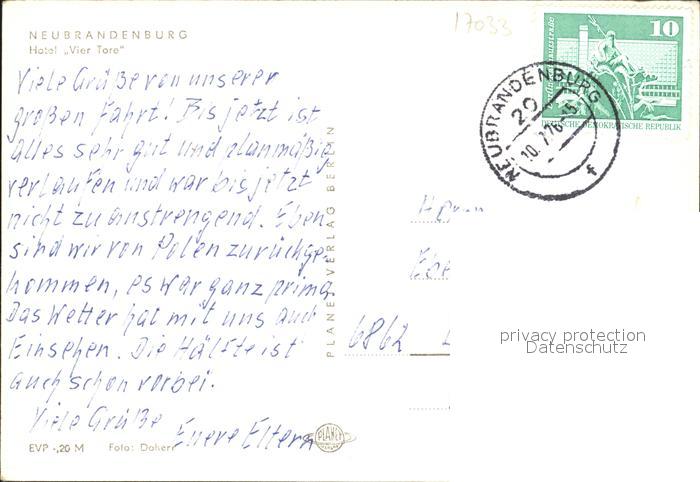 17033
NEUBRANDENBURG
Hotel „Vier Tore"
Viele Grüße von unserer
großen Fahrt! Bis jetzt ist
alles sehr gut und planmäßig
verlaufen und war bis jetzt
nicht zu anstrengend. Eben
sind wir von Polen zurückge-
kommen, es war ganz prima.
Das Wetter hat mit uns auch
Einsehen. Die Hälfte ist
auch schon vorbei.
Viele Grüße
Euere Eltern
EVP -,20 M Foto: Dakert
PLANET-VERLAG BERLIN
PLANET
10
DEUTSCHE DEMOKRATISCHE REPUBLIK
NEUBRANDENBURG
20
10.7.76-15
f
Herrn
Ebe
6862
privacy protection
Datenschutz